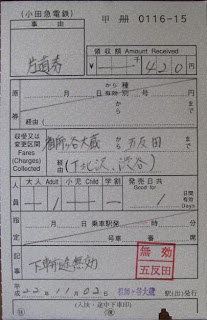 (小田急電鉄) 甲 册 0116-15
事由 片道券
領収額 Amount Received
¥ 千 420円
原券 から 種
有・特別 号
から
まで
経由( )
収受又は変更区間 Fares (Charges) Collected
祖師ヶ谷大蔵 から 五反田 まで
経由 (下北沢、渋谷)
人員 大人 Adult 小児 Child 学割 発売日共 Good for
1 1 日間有効 Days
指定 月 日 乗車駅発( 時 分)
号車 番
記事 下車前途無効
無効
五反田
平成 22.11.02 祖師ヶ谷大蔵 駅(出)発行
(入鋏・途中下車印)